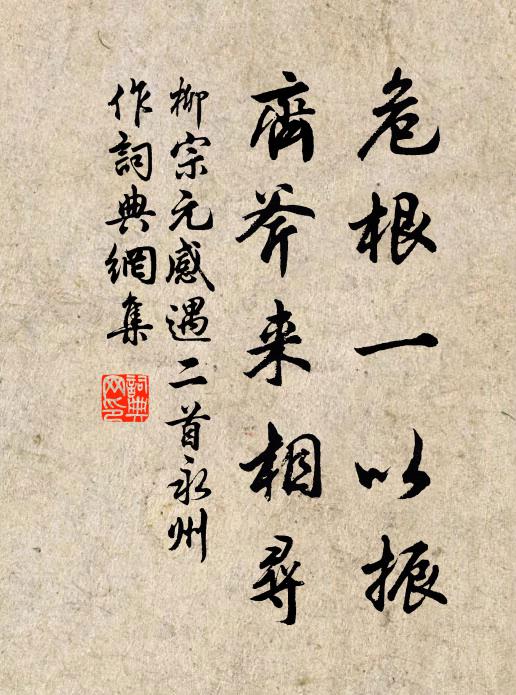 危根一以振
齊斧来相尋
柳宗元感遇二首永州
作詞典網集
詞典
网印